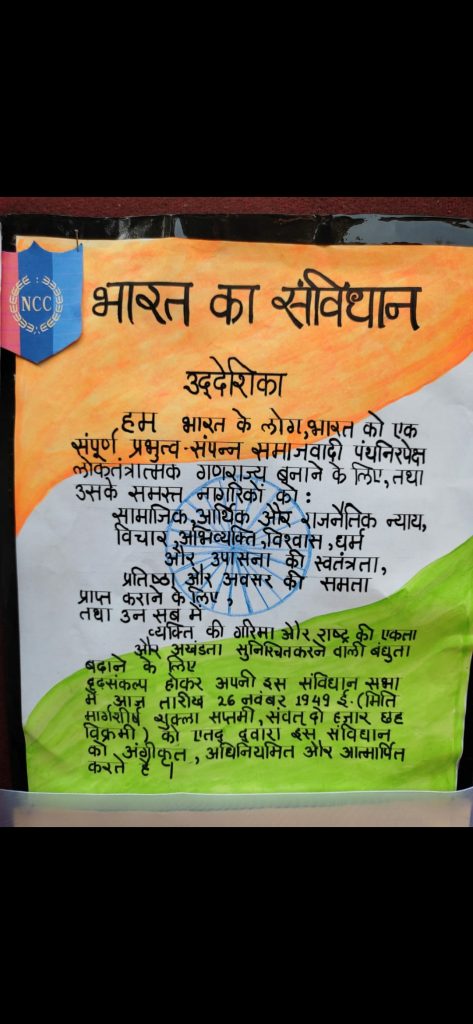 NCC
भारत का संविधान
उद्देशिका
हम भारत के लोग,भारत को एक
संपूर्ण प्रभुत्व-संपन्न समाजवादी पंथनिरपेक्ष
लोकतंत्रात्मक गणराज्य बनाने के लिए, तथा
उसके समस्त नागरिकों को:
सामाजिक,आर्थिक और राजनैतिक न्याय,
विचार,अभिव्यक्ति,विश्वास,धर्म
और उपासना की स्वतंत्रता,
प्रतिष्ठा और अवसर की समता
प्राप्त कराने के लिए,
तथा उन सब में
व्यक्ति की गरिमा और राष्ट्र की एकता
और अखंडता सुनिश्चित करने वाली बंधुता
बढ़ाने के लिए
दृढ़संकल्प होकर अपनी इस संविधान सभा
में आज तारीख 26 नवंबर 1949 ई.(मिति
मार्गशीर्ष शुक्ला सप्तमी, संवत् दो हजार छह
विक्रमी) को एतद् द्वारा इस संविधान
को अंगीकृत, अधिनियमित और आत्मार्पित
करते हैं।